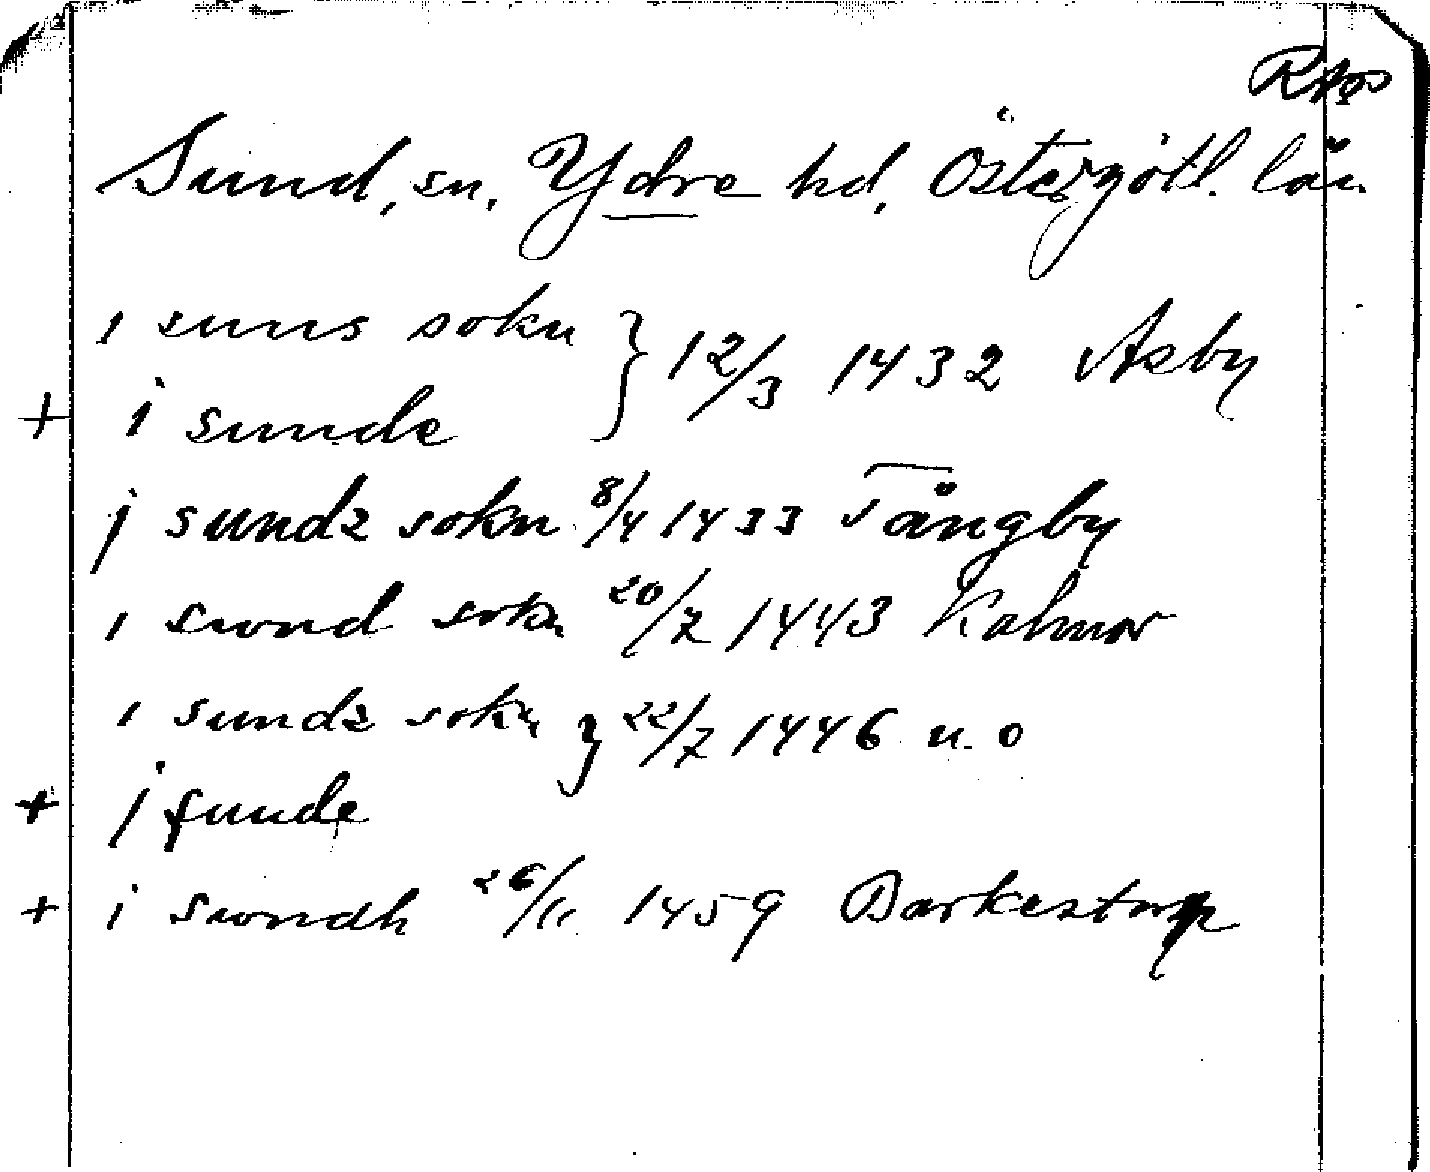 RAp
Sund, sn, Ydre hd, Östergötl. län
i suns sokn } 12/3 1432 Asby
+ i sunde
j sundz sokn 8/4 1433 Tångby
i swnd sokn 20/7 1443 Kalmar
i sundz sokn } 22/7 1446 u. o
+ j sunde
+ i swndh 26/11 1459 Barkestorp